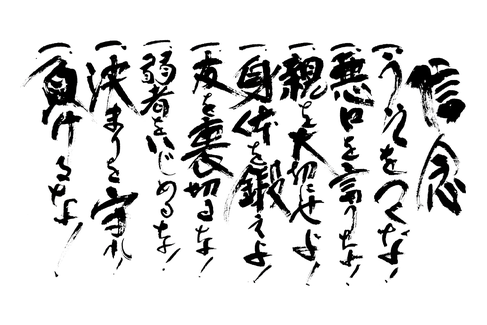 信念
一、うそをつくな!
一、悪口を言うな!
一、親を大切にせよ!
一、身体を鍛えよ!
一、友を裏切るな!
一、弱者をいじめるな!
一、決まりを守れ!
一、負けるな!